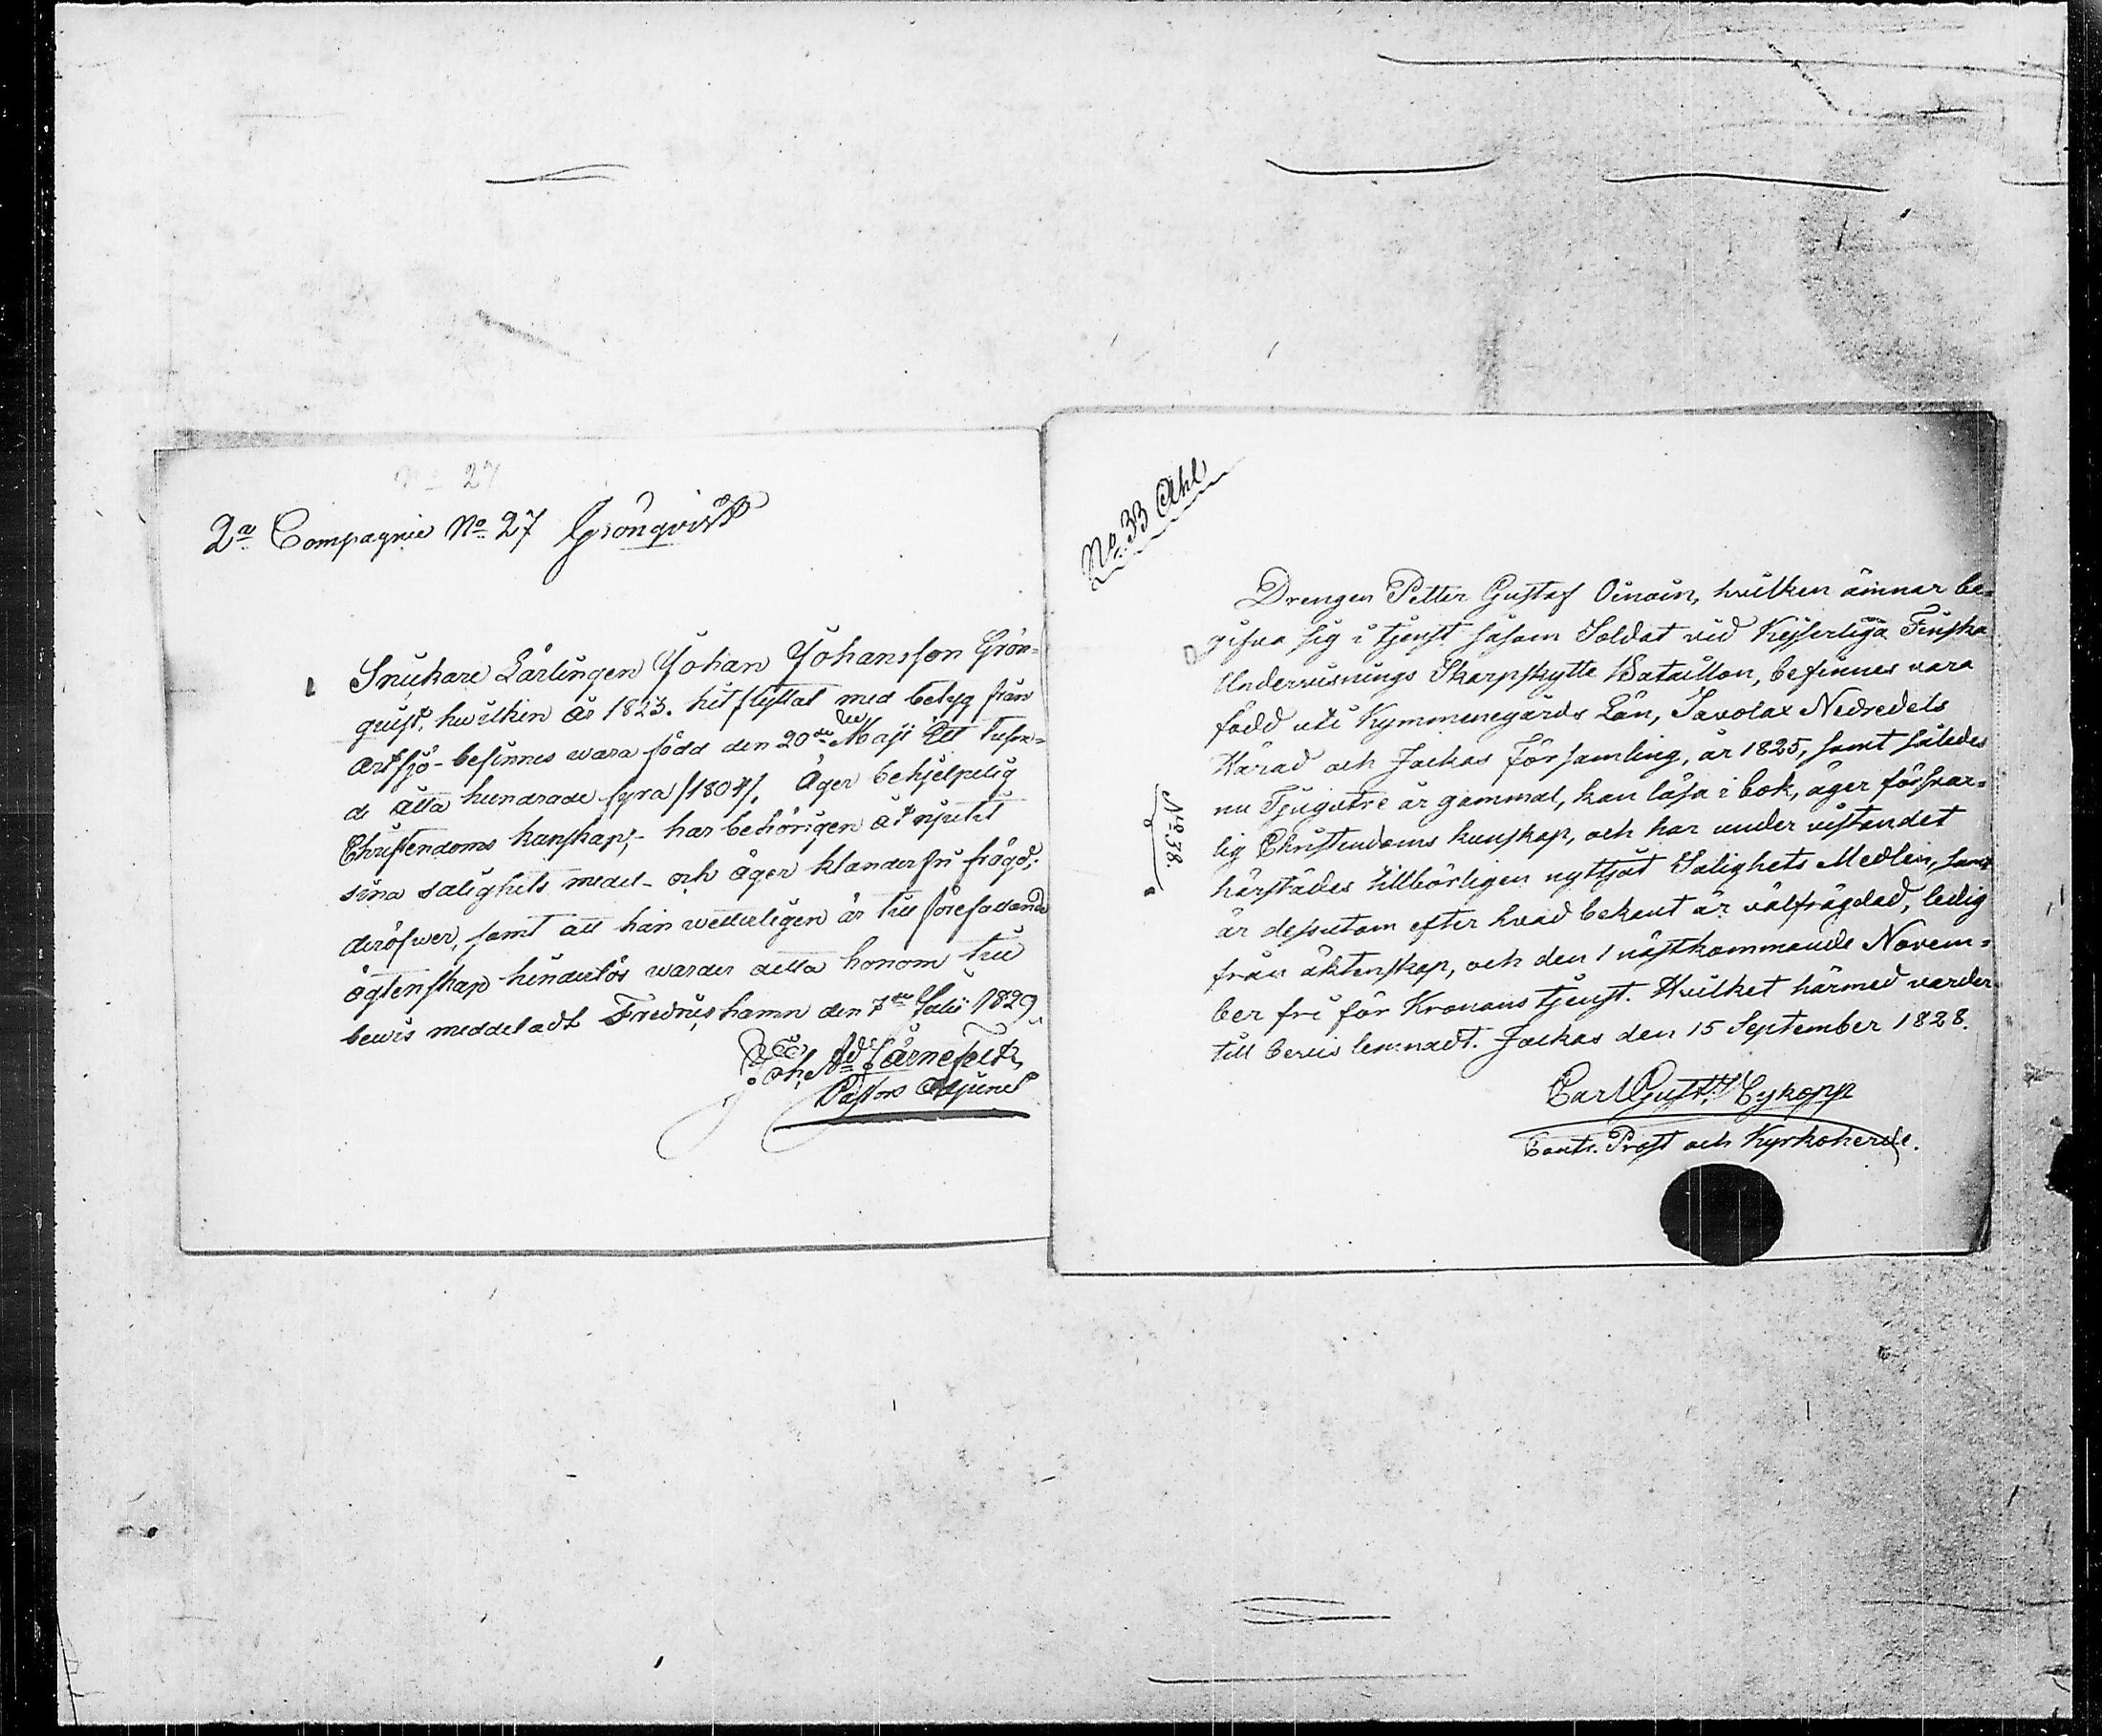 No 27
2a Compagnie No 27 Grönqvist
Snickare Lärlingen Johan Johansson Grön-
quist, hwilken År 1823. hit flyttat med betyg från
Artsjö - befinnes wara född den 20de Maji Ett tusen-
de åtta hundrade fyra /1804/. Äger behjelpelig
Christendoms kunskap, - har behörigen åtnjutit
sina salighets medel - och äger klanderfri frägd;
deröfwer, samt att han wetterligen är till förefallande
ägtenskap hinderlös warder detta honom till
bewis meddeladt Fredrics hamn den 7de Julii 1829
Joh. Ad. Järnefelt,
Pastors Adjunct
No. 33 Ahl
No. 38.
Drengen Petter Gustaf Oinoin, hvilken ämnar be-
gifva sig i tjenst såsom Soldat vid Kejserliga Finska
Undervisnings Skarpskytte Bataillon, befinnes vara
född uti Kymmenegårds Län, Savolax Nedredels
Härad och Jockas Församling, år 1825, samt således
nu Tjugutre år gammal, kan läsa i bok, äger försvar-
lig Christendoms kunskap, och har under vistandet
härstädes tillbörligen nyttjat Salighets Medlen, samt
är dessutom efter hvad bekant är välfrägdad, ledig
från äktenskap, och den 1 nästkommande Novem-
ber fri för Kronans tjenst. Hvilket härmed varder
till bevis lemnadt. Jockas den 15 September 1828.
Carl Gust. Cykopp
Contr. Prost och Kyrkoherde.